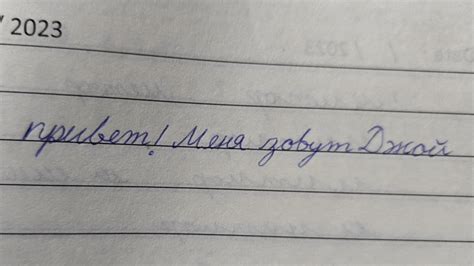 / 2023
привет! Меня зовут Джой